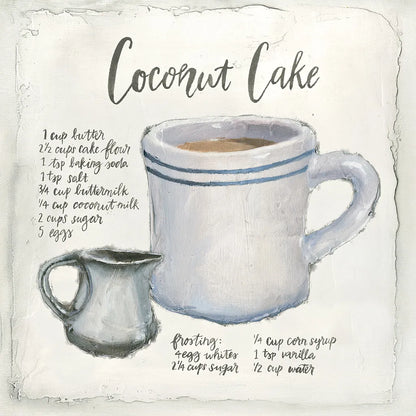 Coconut Cake
1 cup butter
2½ cups cake flour
1 tsp baking soda
1 tsp salt
¾ cup buttermilk
¼ cup coconut milk
2 cups sugar
5 eggs
frosting:
4 egg whites
2¼ cups sugar
¼ cup corn syrup
1 tsp vanilla
½ cup water